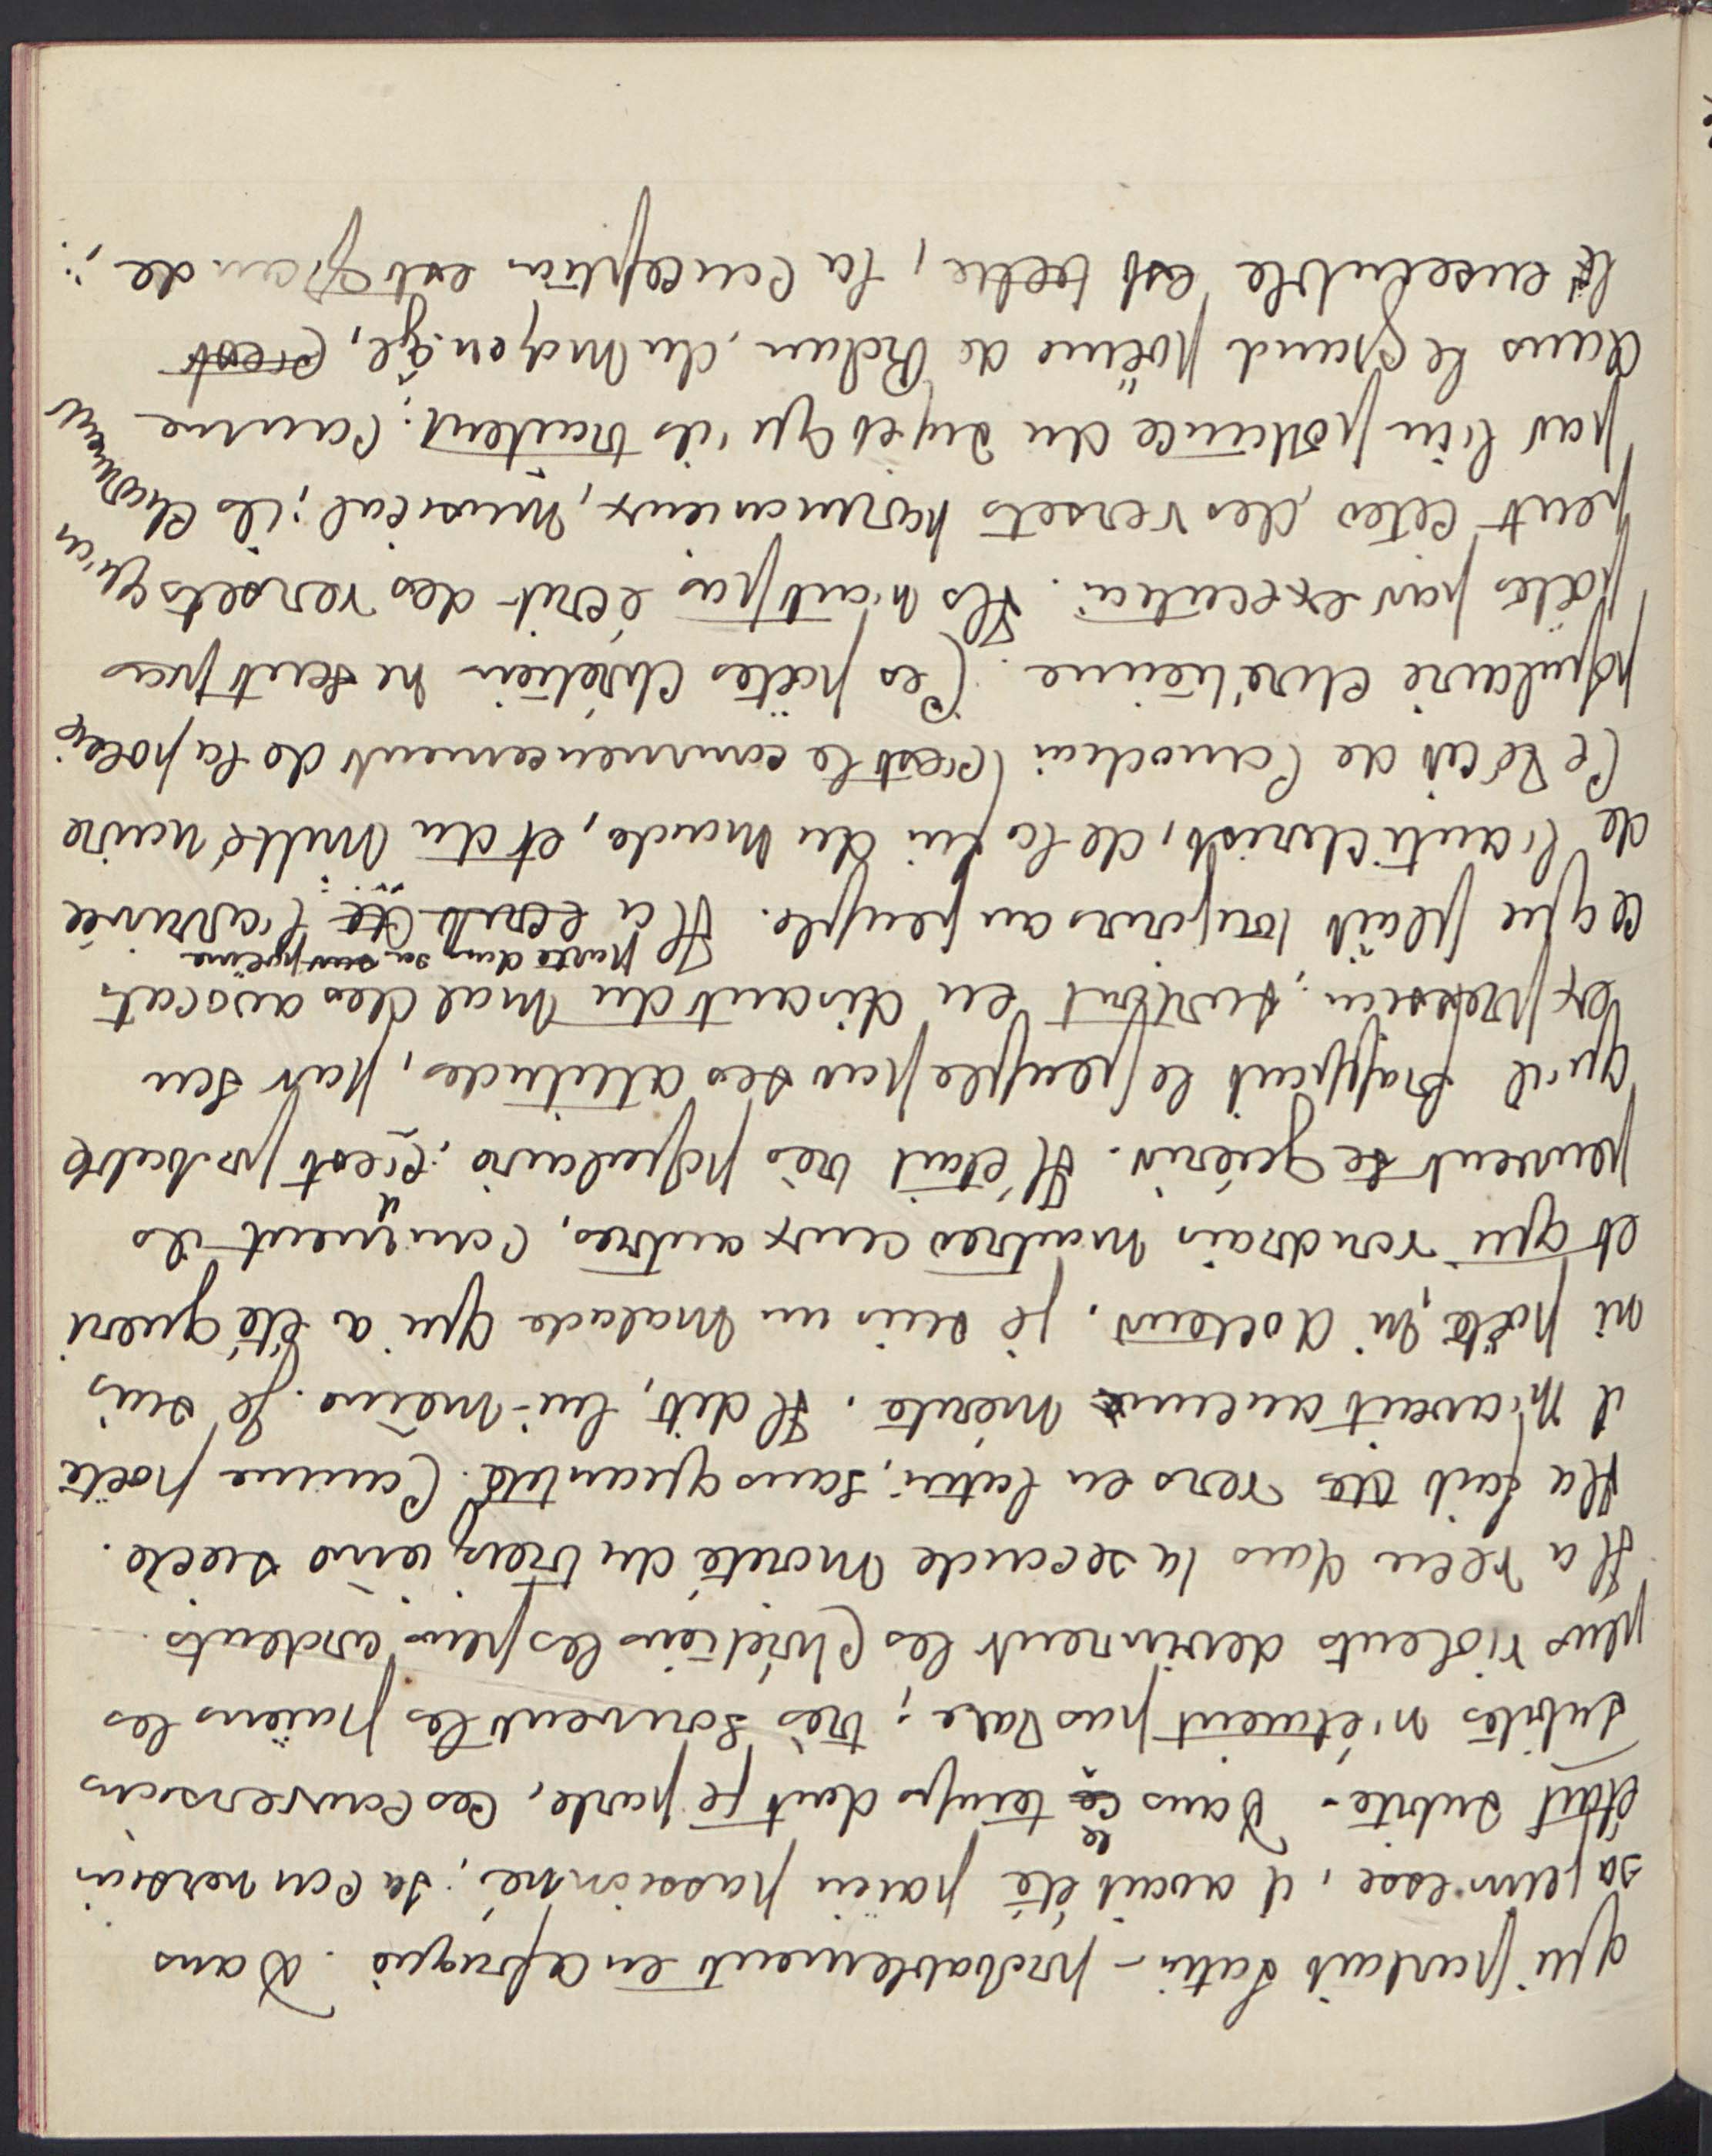 qui parlait Latin - probablement en afrique. Dans
sa jeunesse, il avait été païen passionné; sa conversion
était subite - Dans ce le temps dont je parle, les conversions
subites n'étaient pas rare; très souvent les païens les
plus violents devinrent les Chrétiens les plus ardents.
Il a vécu dans la seconde moitié du troisième siècle.
Il a fait des vers en latin, sans quantité. Comme poëte
il n'avait aucune mérite. Il dit, lui-même. Je suis
ni poëte, ni docteur, je suis un malade qui a été gueri
et qui voudrais montres aux autres, comment ils
peuvent se guérir. Il était très populaire; c'est probable
qu'il frappait le peuple par ses attitudes, par son
expression; surtout en disant du mal des avocats
ce que plait toujours au peuple. Il a écrit de parle dans sa son poëme l'arrivée
de l'anti Christ, de la fin du monde, et du millénaire
Le Récit de Camodien c'est le commencement de la poësie
populaire chrétienne. Ces poëtes Chrétien ne sont pas
poëtes par execution. Ils n'ont pas écrit des versets qu'on
peut citer, des versets harmonieux, musical; ils charment
par l'importance du sujet qu'ils traitent: comme
dans le grand poëme de Rolan, du moyen âge, c'est
l' ensemble est belle, la conception est grande;